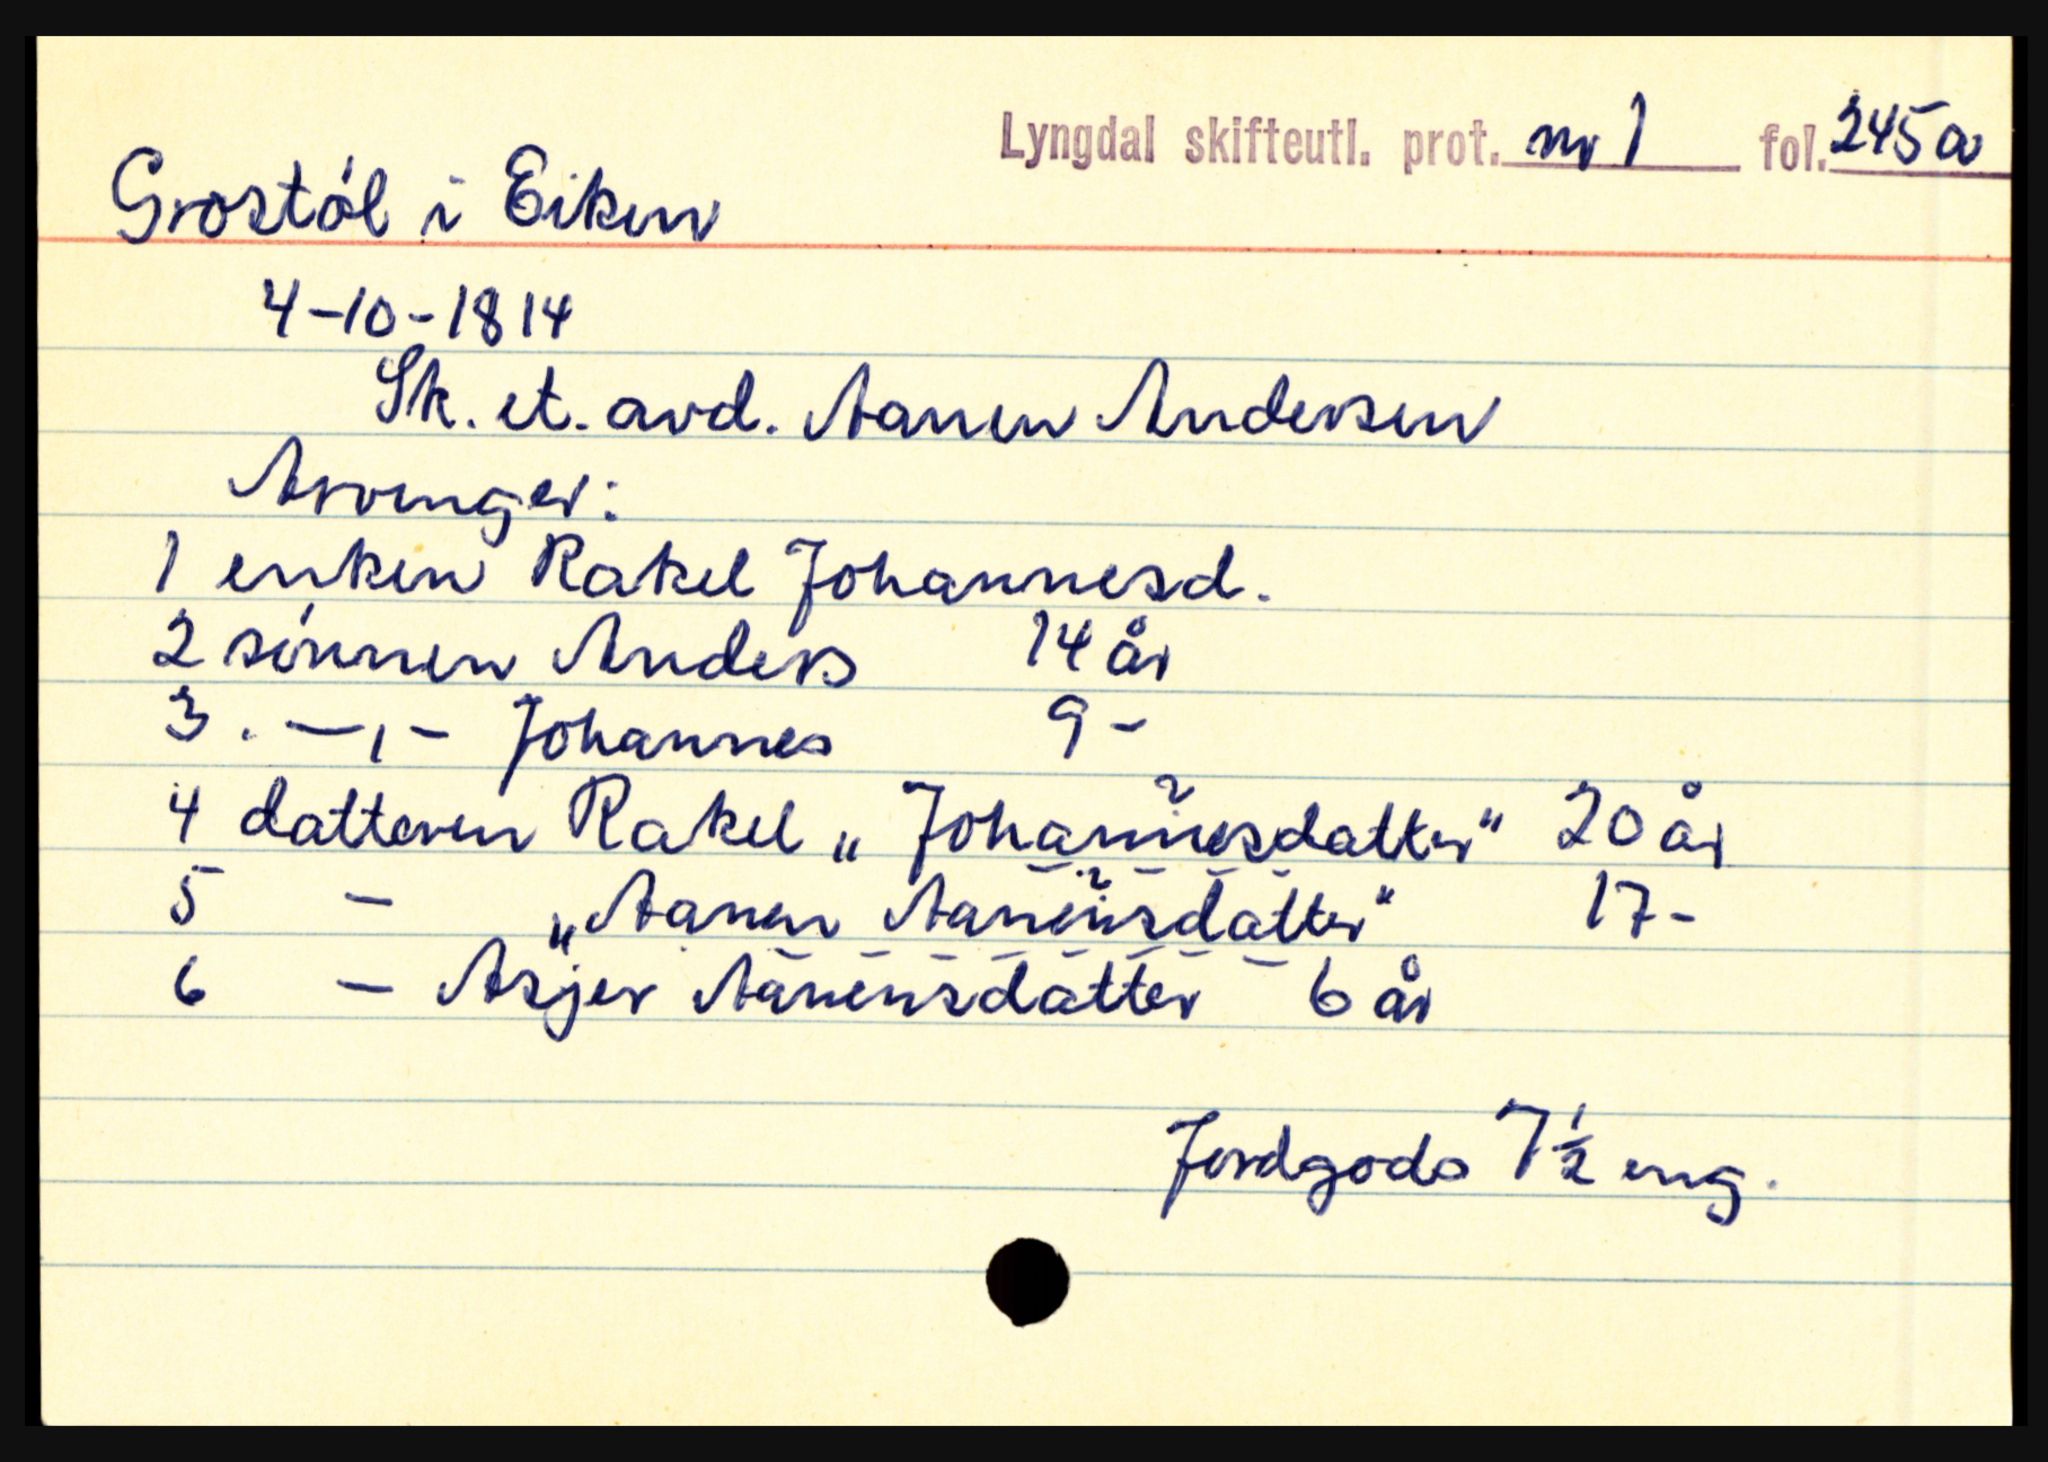 Lyngdal skifteutl. prot. nr 1 fol. 245a
Grostøl i Eiken
4-10-1814
Sk. et. avd. Aanen Andersen
Arvinger:
1 enken Rakel Johannesd.
2 sønnen Anders 14 år
3. —,— Johannes 9 -
4 datteren Rakel „Johannesdatter" ? 20 år
5 - „Aanen Aanensdatter" ? 17 -
6 - Asjer Aanensdatter 6 år
Jordgods 7½ eng.